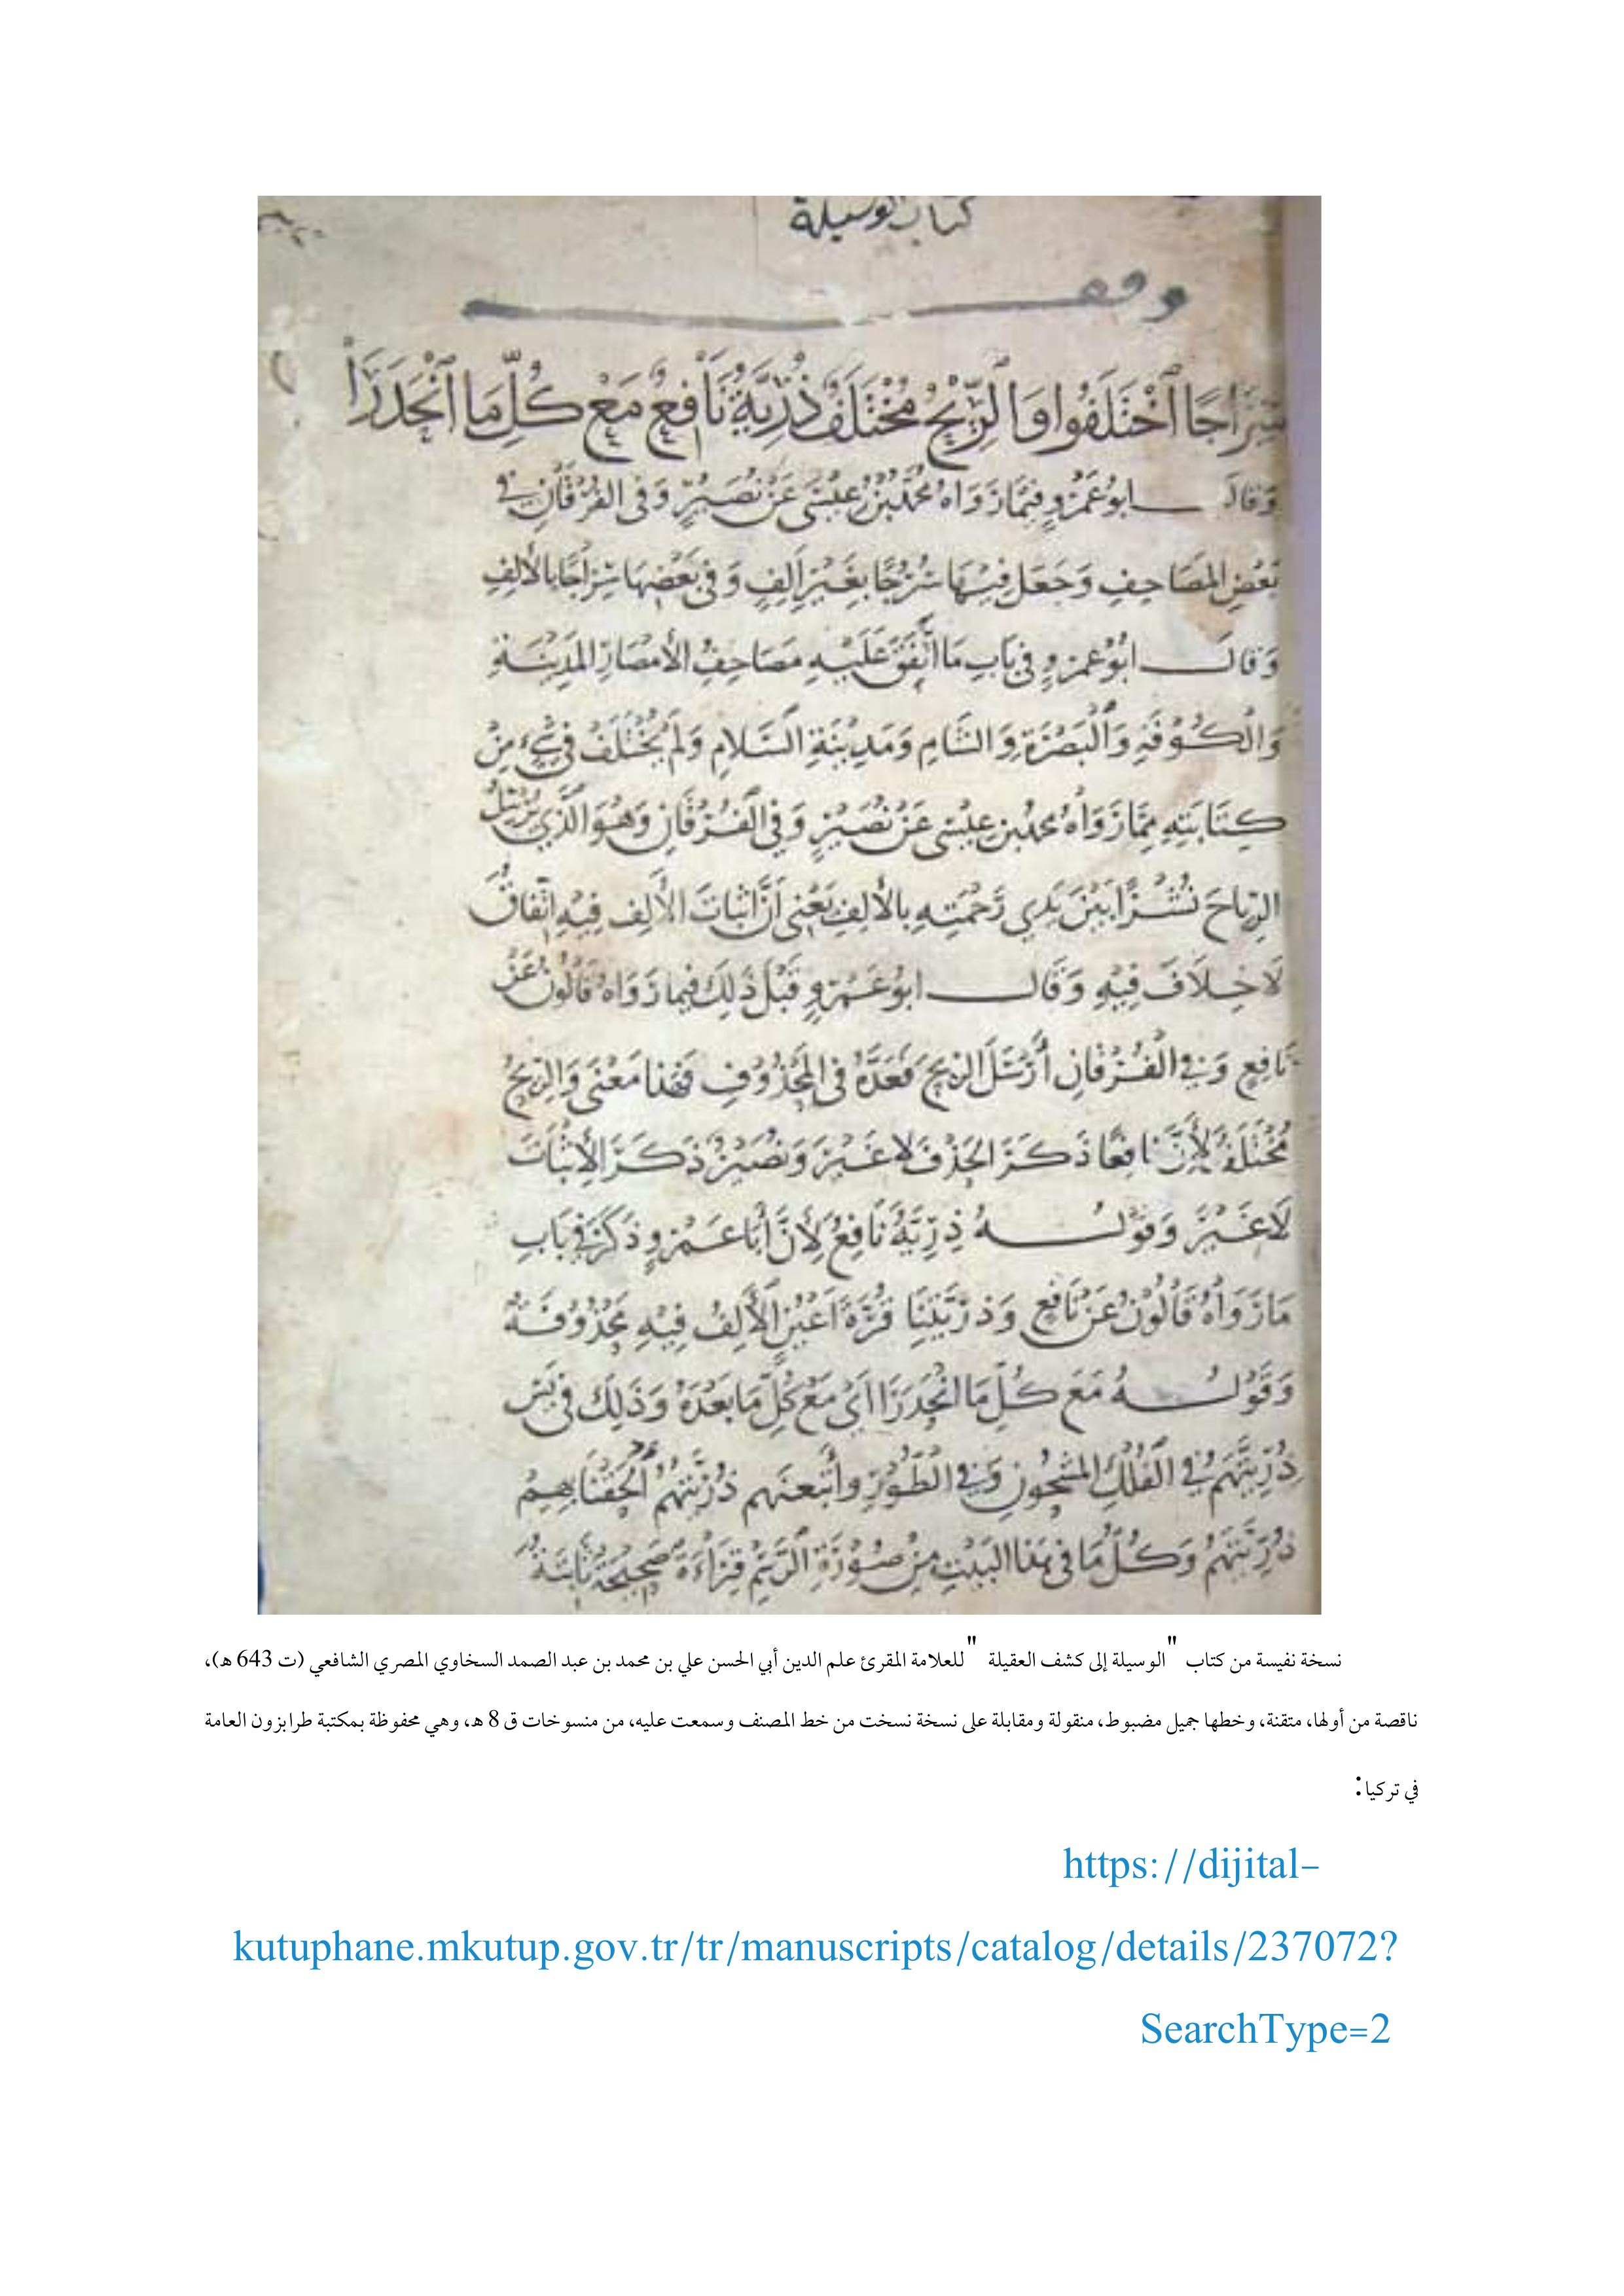 كتاب الوسيلة
وقف
سِرَاجًا اخْتَلَفُوا وَالرِّيحُ مُخْتَلَفٌ ذُرِّيَّةُ نَافِعٌ مَعْ كُلِّ مَا انْحَدَرَا
وَقَالَ ابُو عَمْرٍو فِيمَا رَوَاهُ مُحَمَّدُ بْنُ عِيْسَى عَنْ نُصَيْرٍ وَفى الفُرْقَانِ في
بَعْضِ المَصَاحِفِ وَجَعَل فِيْهَا سُرُجًا بِغَيْرِ اَلِفٍ وَفي بَعْضِهَا سِرَاجًا بِالأَلِفِ
وَقَالَ ابُوْ عَمْرٍو فى بَابِ مَا اتَّفَقَ عَلَيْهِ مَصَاحِفُ الأَمْصَارِ المَدِيْنَةِ
وَالْكُوْفَةِ وَالْبَصْرَةِ وَالشَامِ وَمَدِيْنَةِ السَّلَامِ وَلَمْ يُخْتَلَفْ فِي شَيْءٍ مِنْ
كِتَابَتِهِ مِمَّا رَوَاهُ محمدُ بن عِيْسَى عَنْ نُصَيْرٍ وَفِي الْفُرْقَانِ وَهُوَ الَّذِي يُرْسِلُ
الرِّيَاحَ نُشُرًا بَيْنَ يَدَي رَحْمَتِهِ بِالأَلِفِ يَعْنِي أَنَّ اثْبَاتَ الأَلِفِ فِيْهِ اتِّفَاقٌ
لَا خِلَافَ فِيْهِ وَقَالَ ابُوْ عَمْرٍو قَبْلَ ذَلِكَ فيما رَوَاهُ قَالُونُ عَنْ
نَافِعٍ وَفي الْفُرْقَانِ أَرْسَلَ الرِّيحَ فَعَدَّهُ فى المَحْذُوْفِ فَهَذا مَعْنَى وَالرِّيحُ
مُخْتَلَفٌ لِأَنَّ نَافِعًا ذَكَرَ الحَذْفَ لا غَيْرَ وَنُصَيْرٌ ذَكَرَ الإثْبَاتَ
لَا غَيْرَ وَقَوْلُهُ ذُرِّيَّةُ نَافِعٌ لِأَنَّ أَبَا عَمْرٍو ذَكَرَ فِي بَابِ
مَا رَوَاهُ قَالُوْنُ عَنْ نَافِعٍ وَذُرِّيَّتِنَا قُرَّةَ اَعْيُنٍ الْأَلِفُ فِيْهِ مَحْذُوْفَةٌ
وَقَوْلُهُ مَعَ كُلِّ مَا انْحَدَرَا اَيْ مَعْ كُلِّ مَا بَعْدَهُ وَذَلِكَ فى يَس
ذُرِّيَّتَهُمْ فِي الْفُلْكِ المَشْحُونِ وَفي الطُّوْرِ وأَتْبَعْنَهم ذُرِّيَّتَهُمْ أَلْحَقْنَا بِهِمْ
ذُرِّيَّتَهُمْ وَكُلُّ مَا فى هَذا البَيْتِ مِنْ صُوْرَةِ الرَّسْمِ قِرَاءَةٌ صَحِيْحَةٌ ثَابِتَةٌ
نسخة نفيسة من كتاب "الوسيلة إلى كشف العقيلة "للعلامة المقرئ علم الدين أبي الحسن علي بن محمد بن عبد الصمد السخاوي المصري الشافعي (ت 643 هـ)،
ناقصة من أولها، متقنة، وخطها جميل مضبوط، منقولة ومقابلة على نسخة نسخت من خط المصنف وسمعت عليه، من منسوخات ق 8 هـ، وهي محفوظة بمكتبة طرابزون العامة
في تركيا:
https://dijital-
kutuphane.mkutup.gov.tr/tr/manuscripts/catalog/details/237072?
SearchType=2